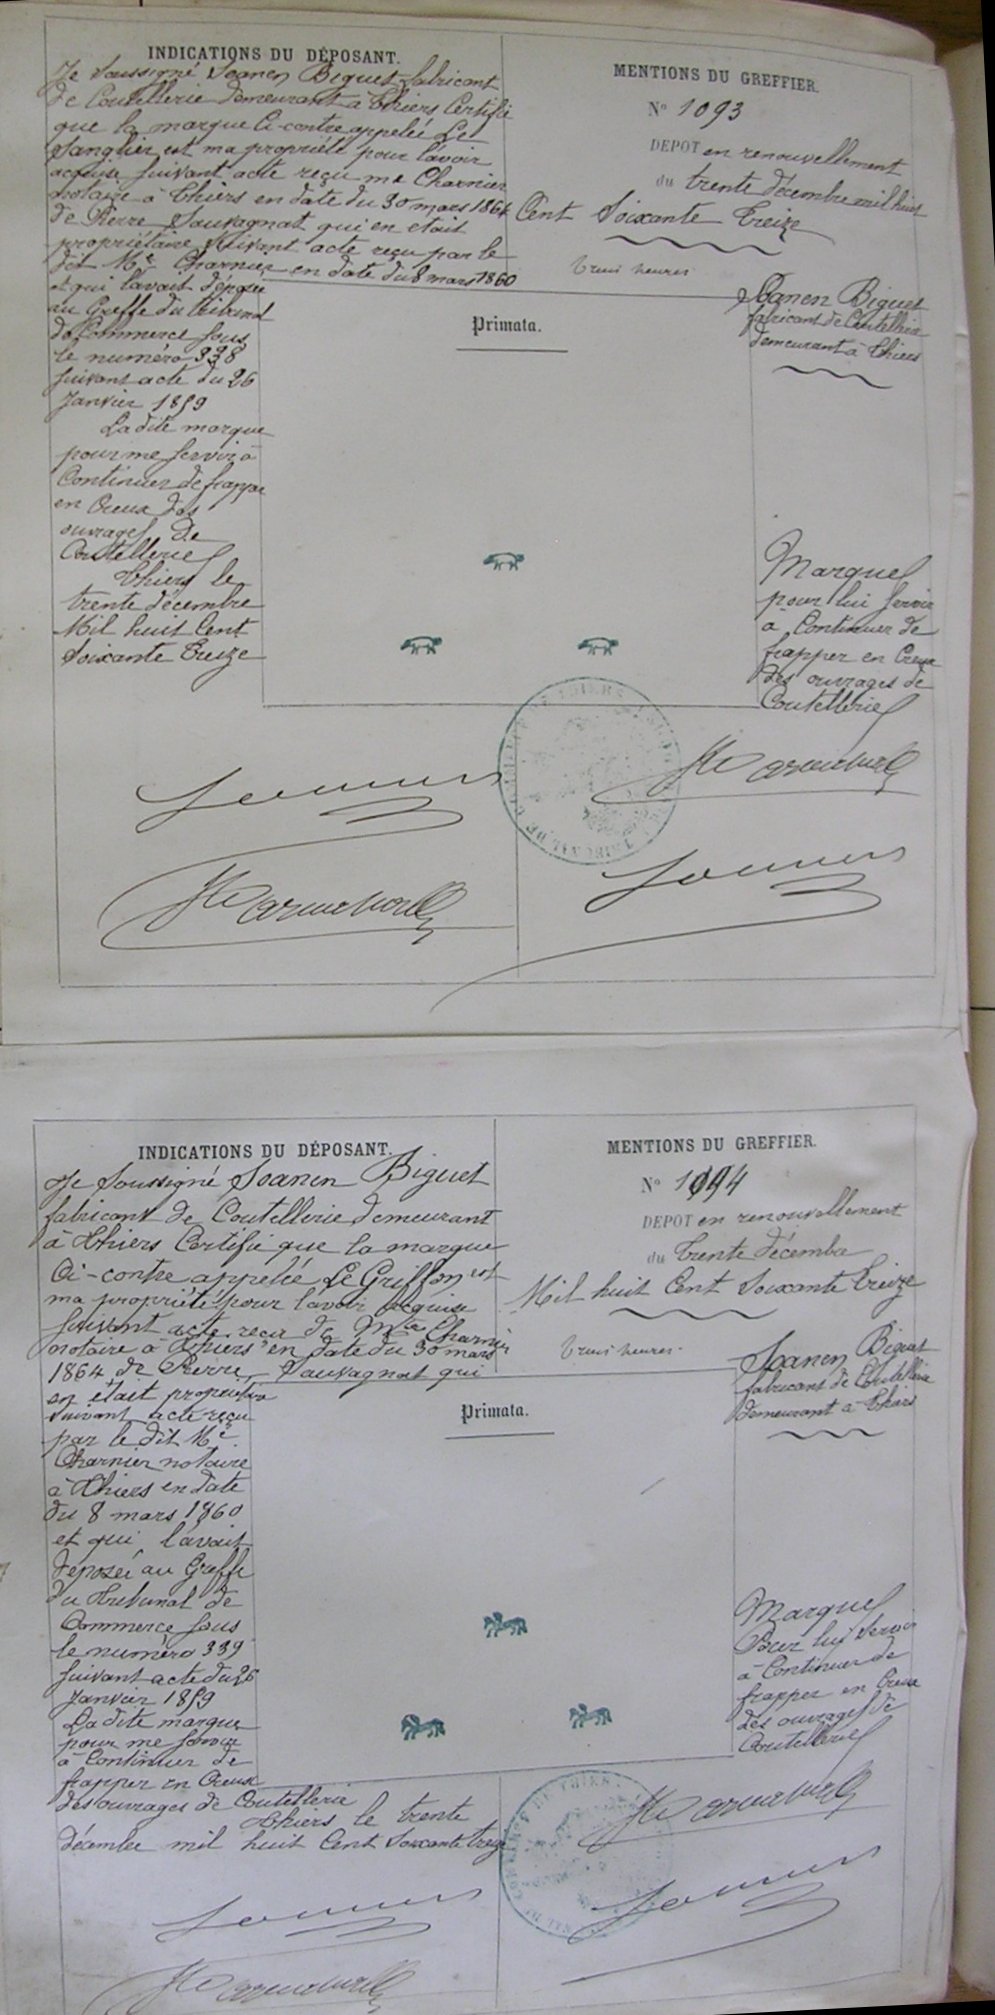 INDICATIONS DU DÉPOSANT.
Je Soussigné Joanen Biguet fabricant
de Coutellerie demeurant à Thiers Certifie
que la marque Ci-contre appelée Le
Sanglier est ma propriété pour l'avoir
acquise suivant acte reçu me Charnier
notaire à Thiers en date du 30 mars 1864
de Pierre Sauvagnat qui en etait
propriétaire suivant acte reçu par le
dit Me Charnier en date du 8 mars 1860
et qui l'avait déposée
au Greffe du tribunal
de Commerce sous
le numéro 338
suivant acte du 26
Janvier 1859
La dite marque
pour me servir à
Continuer de frapper
en Creux des
ouvrages de
Coutellerie
Thiers le
trente décembre
Mil huit Cent
Soixante Treize
MENTIONS DU GREFFIER.
No 1093
DEPOT en renouvellement
du trente décembre mil huit
Cent Soixante Treize
trois heures
Joanen Biguet
fabricant de Coutellerie
demeurant à Thiers
Primata.
Marque
pour lui servir
à Continuer de
frapper en Creux
des ouvrages de
Coutellerie
INDICATIONS DU DÉPOSANT.
Je Soussigné Joanen Biguet
fabricant de Coutellerie demeurant
à Thiers Certifie que la marque
Ci-contre appelée Le Griffon est
ma propriété pour l'avoir acquise
suivant acte reçu de Me Charnier
notaire à Thiers en date du 30 mars
1864 de Pierre Sauvagnat qui
en était propriétaire
suivant acte reçu
par le dit Me
Charnier notaire
à Thiers en date
du 8 mars 1860
et qui l'avait
déposée au Greffe
du Tribunal de
Commerce sous
le numéro 339
suivant acte du 26
Janvier 1859
La dite marque
pour me servir
à Continuer de
frapper en Creux
des ouvrages de Coutellerie
Thiers le trente
décembre mil huit Cent Soixante treize
MENTIONS DU GREFFIER.
No 1094
DEPOT en renouvellement
du Trente décembre
Mil huit Cent Soixante Treize
trois heures
Joanen Biguet
fabricant de Coutellerie
demeurant à Thiers
Primata.
Marque
Pour lui servir
à Continuer de
frapper en Creux
des ouvrages de
Coutellerie